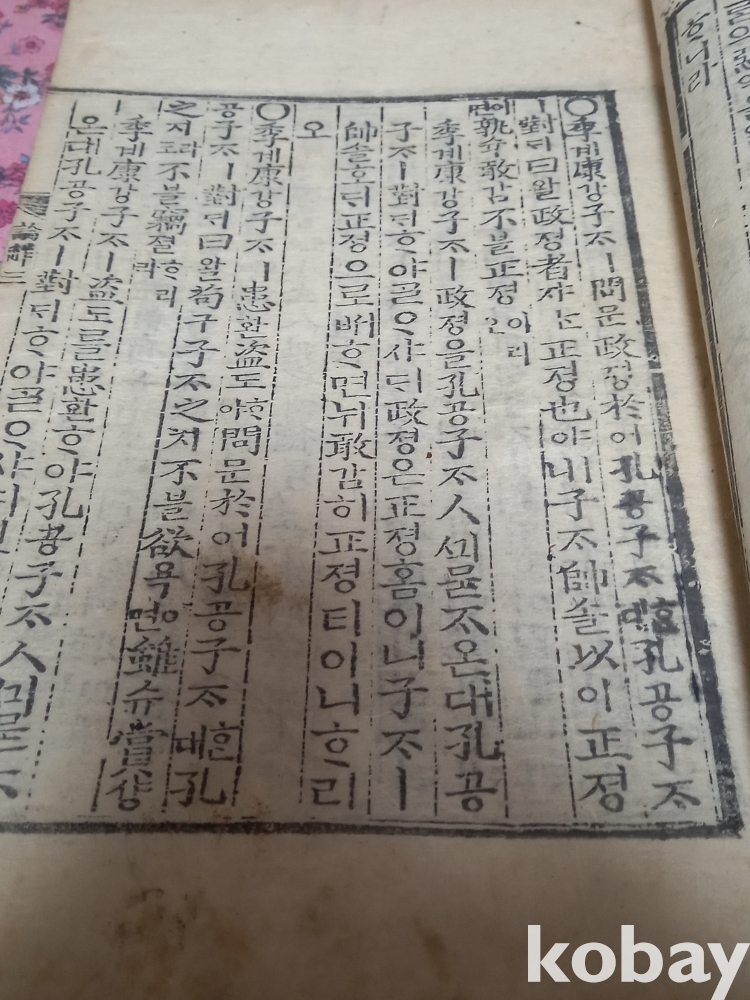 ᄒᆞ니라
○季계康강子ᄌᆞㅣ問문政졍於어孔공子ᄌᆞᄒᆞᆫ대孔공子ᄌᆞ
ㅣ對ᄃᆡ曰왈政졍者쟈ᄂᆞᆫ正졍也야ㅣ니子ᄌᆞ帥솔以이正졍
이면孰슉敢감不블正졍이리오
季계康강子ᄌᆞㅣ政졍을孔공子ᄌᆞᄭᅴ묻ᄌᆞ온대孔공
子ᄌᆞㅣ對ᄃᆡᄒᆞ야ᄀᆞᆯᄋᆞ샤ᄃᆡ政졍은正졍홈이니子ᄌᆞㅣ
帥솔호ᄃᆡ正졍으로ᄡᅥᄒᆞ면뉘敢감히正졍티아니ᄒᆞ리
오
○季계康강子ᄌᆞㅣ患환盜도ᄒᆞ야問문於어孔공子ᄌᆞᄒᆞᆫ대孔
공子ᄌᆞㅣ對ᄃᆡ曰왈苟구子ᄌᆞ之지不블欲욕이면雖슈賞샹
之지라도不블竊졀ᄒᆞ리라
季계康강子ᄌᆞㅣ盜도를患환ᄒᆞ야孔공子ᄌᆞᄭᅴ묻ᄌᆞ
온대孔공子ᄌᆞㅣ對ᄃᆡᄒᆞ야ᄀᆞᆯᄋᆞ샤ᄃᆡ
kobay